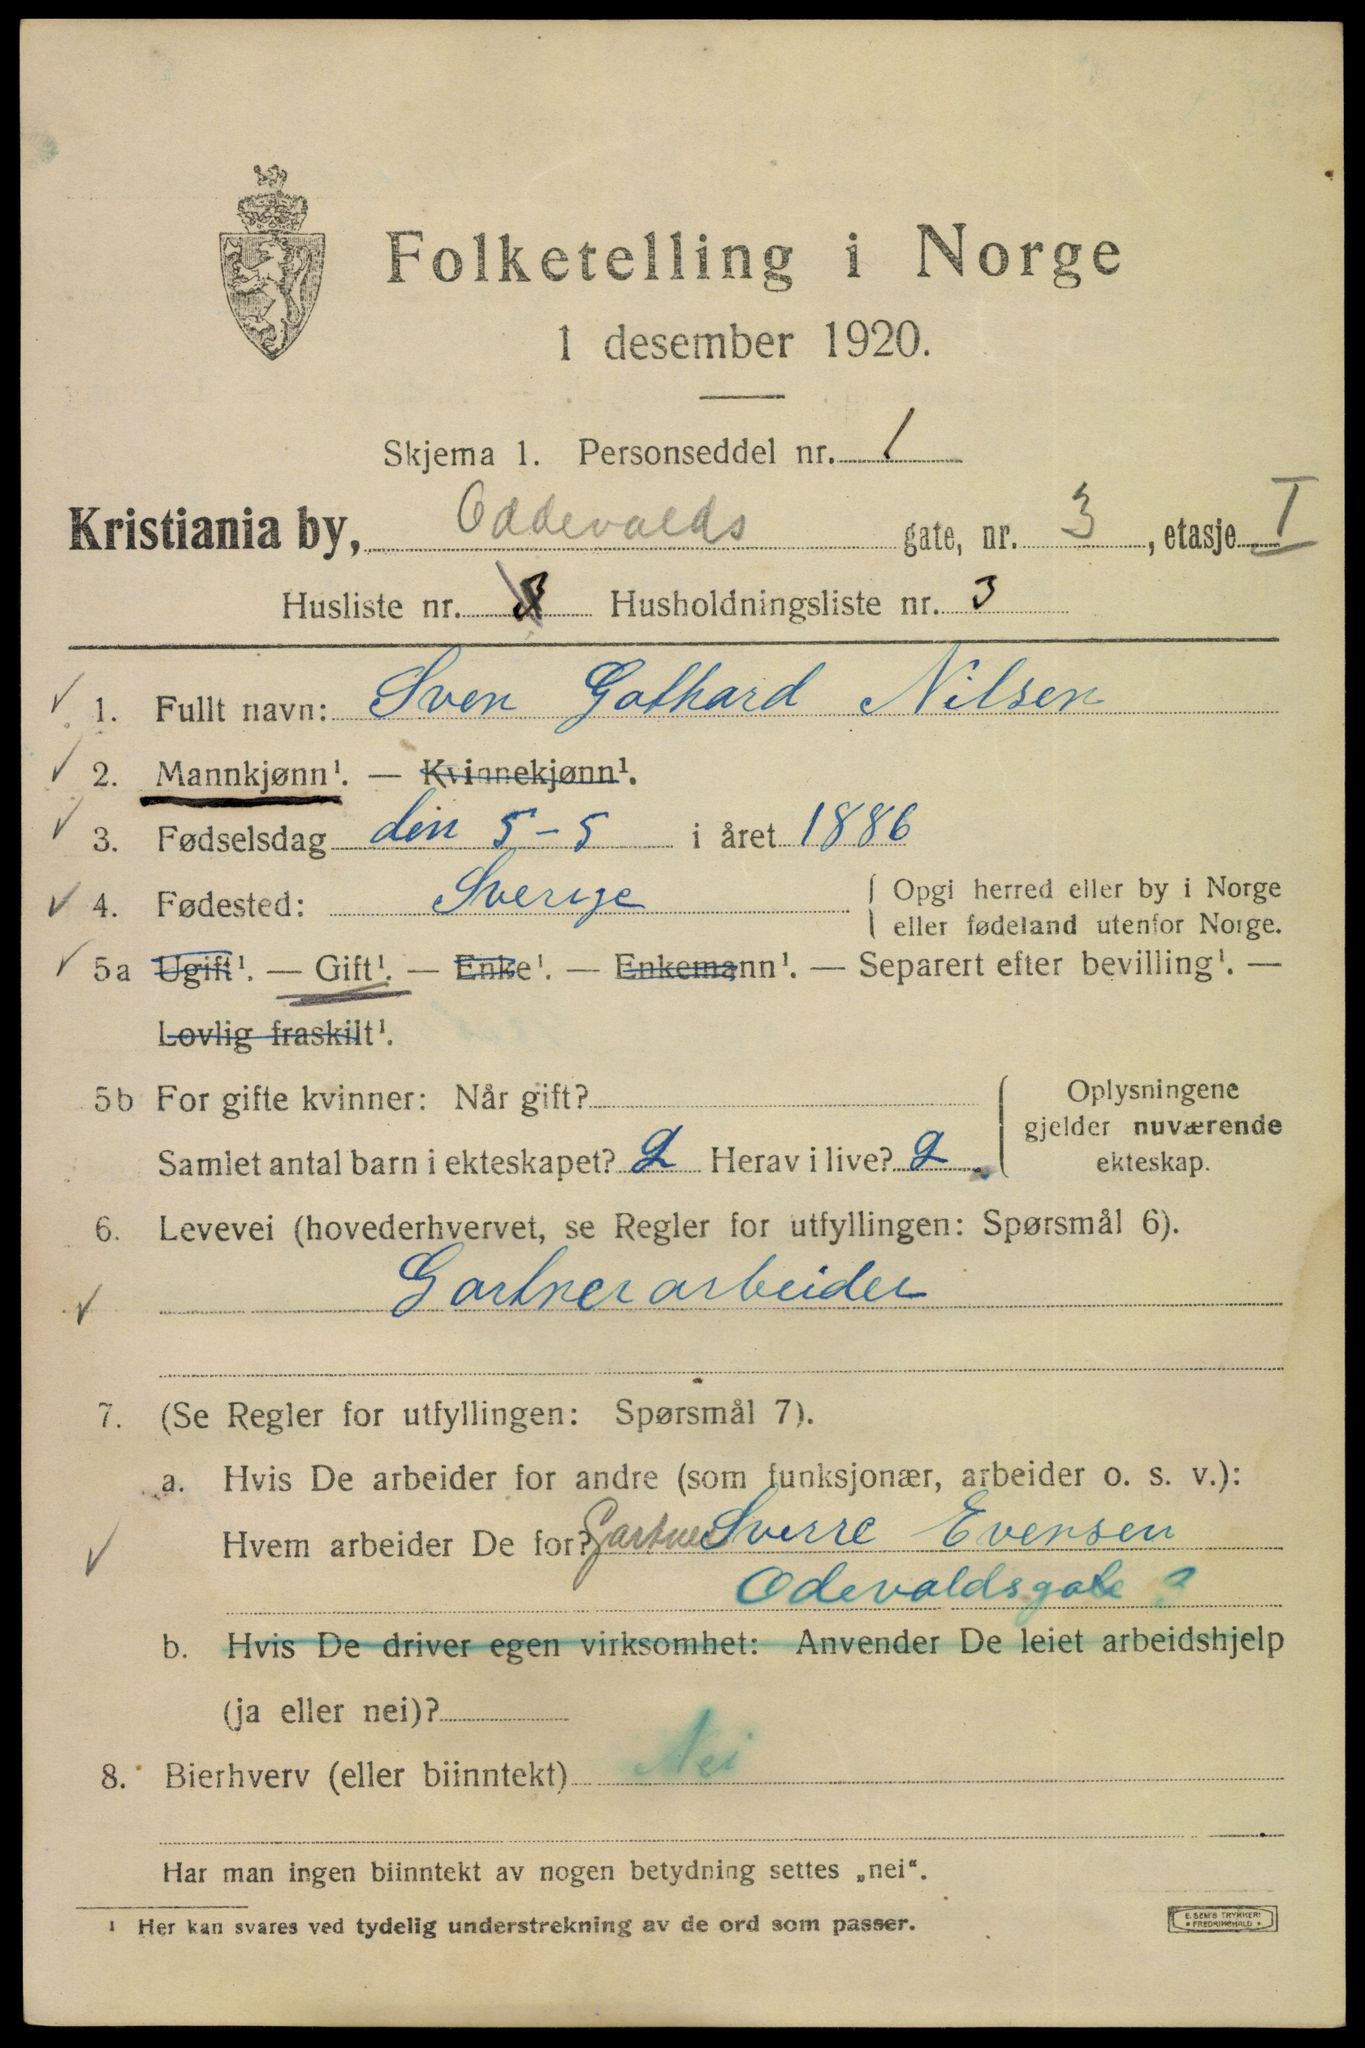 Folketelling i Norge
1 desember 1920.
Skjema 1. Personseddel nr. 1
Kristiania by, Oddevalds gate, nr. 3, etasje I
Husliste nr. Husholdningsliste nr. 3
1. Fullt navn: Sven Gothard Nilsen
2. Mannkjønn¹. — Kvinnekjønn¹.
3. Fødselsdag den 5-5 i året 1886
4. Fødested: Sverige { Opgi herred eller by i Norge
eller fødeland utenfor Norge.
5a Ugift¹. — Gift¹. — Enke¹. — Enkemann¹. — Separert efter bevilling¹. —
Lovlig fraskilt¹.
5b For gifte kvinner: Når gift?
Samlet antal barn i ekteskapet? 2 Herav i live? 2
Oplysningene
gjelder nuværende
ekteskap.
6. Levevei (hovederhvervet, se Regler for utfyllingen: Spørsmål 6).
Gartnerarbeider
7. (Se Regler for utfyllingen: Spørsmål 7).
a. Hvis De arbeider for andre (som funksjonær, arbeider o. s. v.):
Hvem arbeider De for? Gartner Sverre Evensen
Odevaldsgate
b. Hvis De driver egen virksomhet: Anvender De leiet arbeidshjelp
(ja eller nei)?
8. Bierhverv (eller biinntekt) Nei
Har man ingen biinntekt av nogen betydning settes „nei“.
¹ Her kan svares ved tydelig understrekning av de ord som passer.
E. SEM'S TRYKKERI
• FREDRIKSHALD •